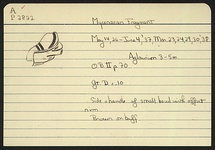 A
P 2822
Mycenaean Fragment
May 14, 26 - June 4, '37, Mar. 23, 24, 29, 30, '38
3-5m
OB II p. 70
Side + handle of small bowl with offset
rim
Brown on buff